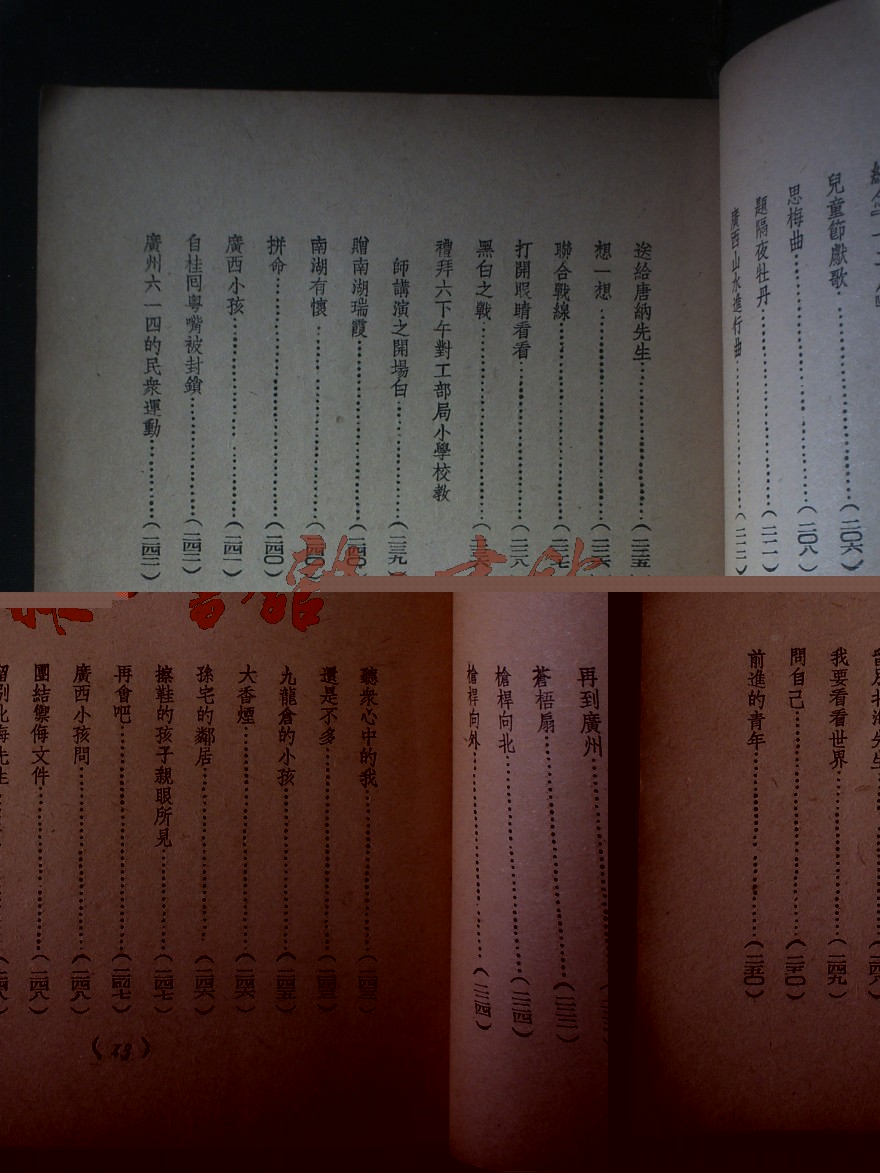 兒童節獻歌……(二〇六)
思梅曲……(二〇八)
題隔夜牡丹……(二一一)
廣西山水進行曲……(二一二)
送給唐納先生……(二三五)
想一想……(二三六)
聯合戰線……(二三七)
打開眼睛看看……(二三八)
黑白之戰……
禮拜六下午對工部局小學校教
師講演之開場白……(二三九)
贈南湖瑞霞……(二四〇)
南湖有懷……(二四〇)
拼命……(二四〇)
廣西小孩……(二四一)
自桂囘粵嘴被封鎖……(二四二)
廣州六一四的民衆運動……(二四二)
再到廣州……
蒼梧扇……
槍桿向北……(二二四)
槍桿向外……(二二四)
聽衆心中的我……
還是不多……
九龍倉的小孩……(二四五)
大香煙……(二四六)
孫宅的鄰居……(二四六)
擦鞋的孩子親眼所見……(二四七)
再會吧……(二四七)
廣西小孩問……(二四八)
團結禦侮文件……(二四八)
留別北海先生……(二四八)
(23)
我要看看世界……(二四九)
問自己……(二五〇)
前進的青年……(二五〇)